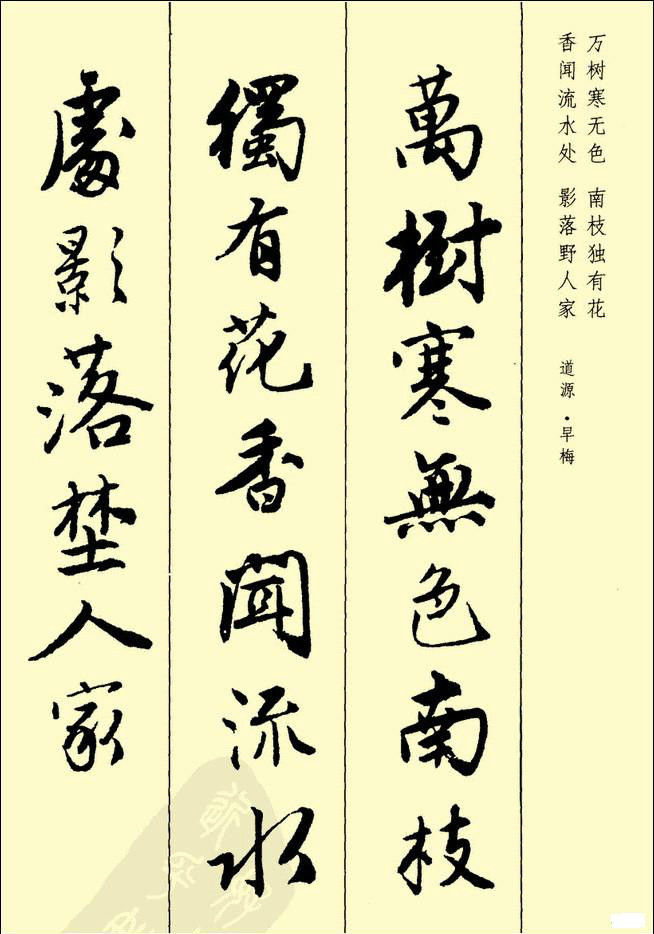 万树寒无色 南枝独有花
香闻流水处 影落野人家
道源·早梅
萬樹寒無色南枝
獨有花香聞流水
處影落埜人家